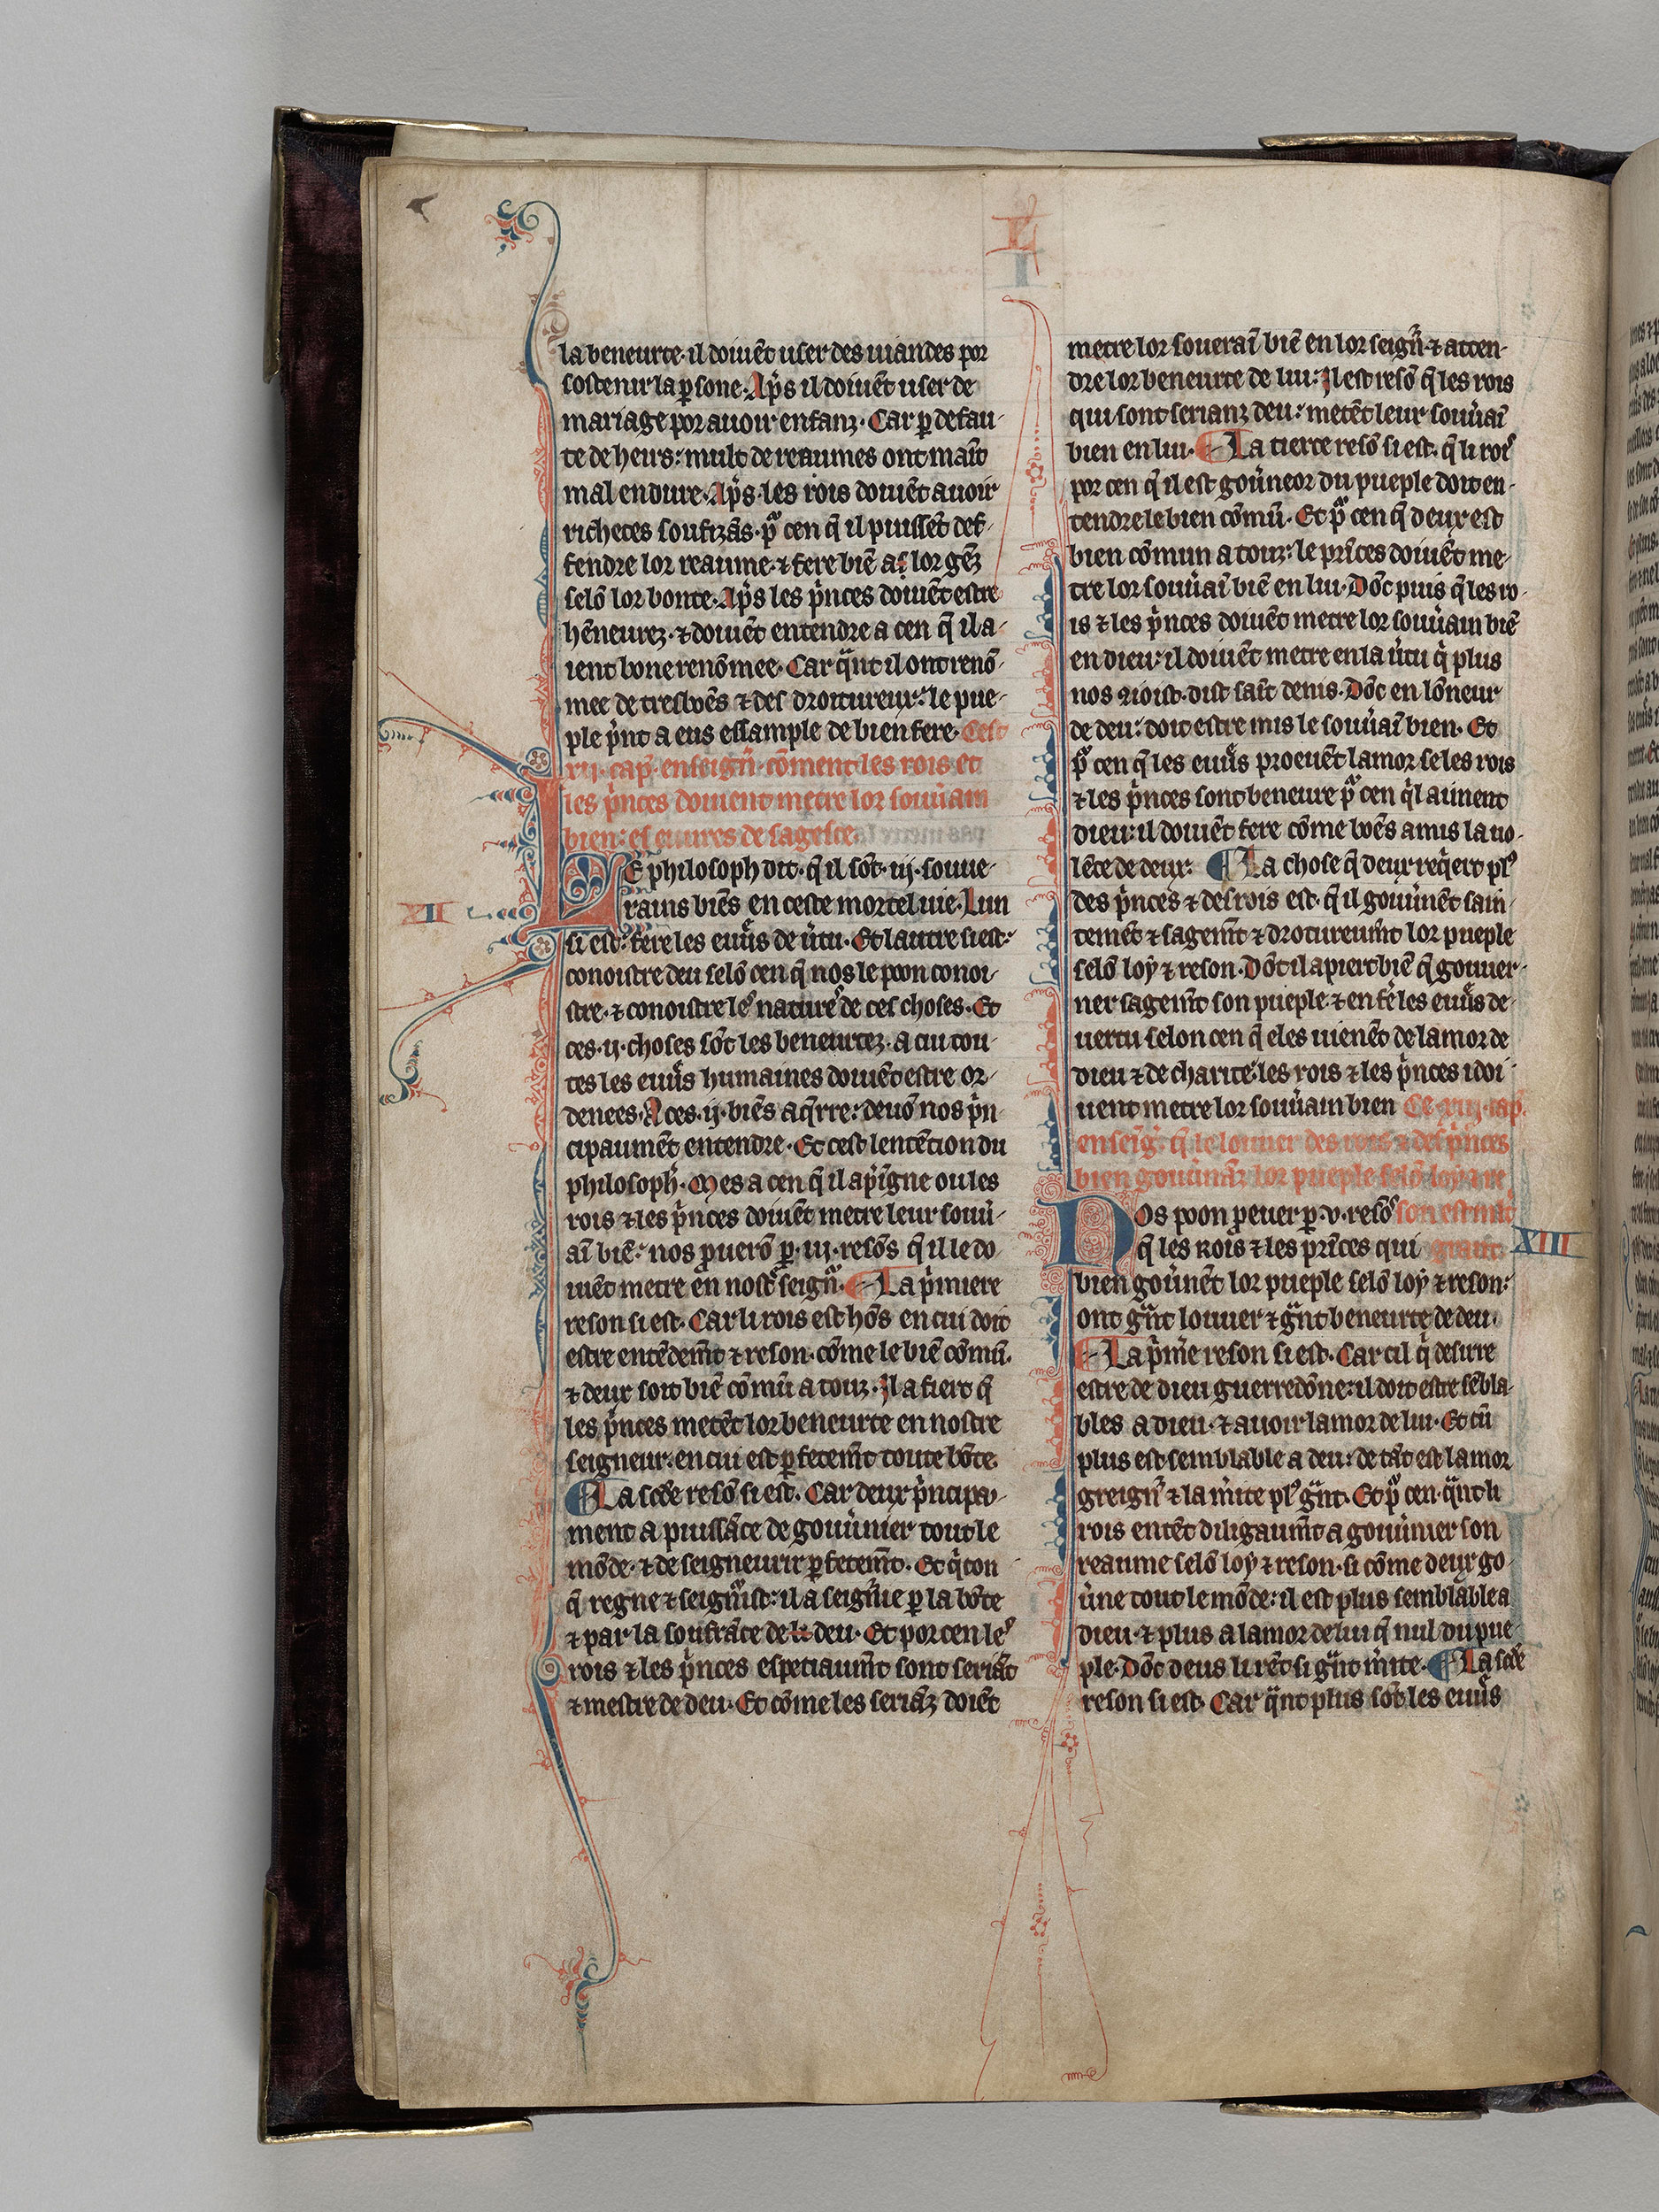 L
I
la beneurte· il doiuēt user des uiandes por
sostenir la ꝑsone· Ap̄s il doiuēt user de
mariage por auoir enfanz· Car ꝑ defau-
te de heirs: mult de reaumes ont maīt
mal endure· Ap̄s les rois doiuēt auoir
richeces soufizās· pͬ cen q̄ il puissēt def-
fendre lor reaume· ⁊ fere biē as lor gēz
selō lor bonte· Ap̄s les pͥnces doiuēt estre
hēneurez· ⁊ doiuēt entendre a cen q̄ il a-
ient bone renōmee· Car qͣnt il ont renō-
mee de tresbōes ⁊ des droitureux: le pue-
ple pͥnt a eus essample de bien fere· Cest
xij· cap̄· enseigñ· cōment les rois et
les pͥnces doiuent metre lor souu̾ain
bien: es euures de sagesce·
LE philosoph dit· q̄ il sōt· iij· souue-
rains biēs en ceste mortel uie· Lun
XII
si est: fere les euu̾s de u̾tu· Et lautre si est:
conoistre deu selō cen q̄ nos le poon conoi-
stre· ⁊ conoistre les natures de ces choses· Et
ces· ij· choses sōt les beneurtez· a cui tou-
tes les euu̾s humaines doiuēt estre or-
denees· A ces· ij· biēs aq̄rre: deuō nos pͥn-
cipaumēt entendre· Et cest lentēcion du
philosoph̄· Mes a cen q̄ il apͥigne ou les
rois ⁊ les pͥnces doiuēt metre leur souu̾-
aī biē: nos ꝓuerō ꝑ· iij· resōs q̄ il le do
iuēt metre en nostͬ seigñ· ¶ La pͥmiere
reson si est· Car li rois est hōs en cui doit
estre entēdem̄t ⁊ reson· cōme le biē cōmū·
⁊ deux soit biē cōmū a touz· Il afiert q̄
les pͥnces metēt lor beneurte en nostre
seigneur: en cui est ꝑfetem̄t toute bōte·
¶ La scd̄e resō si est· Car deux pͥncipau-
ment a puissāce de gouu̾nier tout le
mōde· ⁊ de seigneurir ꝑfetem̄t· Et qͥcon
q̄ regne ⁊ seign̄ist: il a seign̄ie ꝑ la bōte
⁊ par la soufrāce de deu· Et por cen les
rois ⁊ les pͥnces espetiaum̄t sont seriāt
⁊ mestre de deu· Et cōme les seriāz doiēt
metre lor souueraī biē en lor seigñ· ⁊ atten-
dre lor beneurte de lui: Il est resō q̄ les rois
qui sont serianz deu: metēt leur souu̾aī
bien en lui· ¶ La tierce resō si est· q̄ li rois
por cen q̄ il est gou̾neor du pueple doit en-
tendre le bien cōmū· Et pͬ cen q̄ deux est
bien cōmun a touz: le prīces doiuēt me-
tre lor souu̾aī biē en lui· Dōc puis q̄ les ro-
is ⁊ les pͥnces doiuēt metre lor souu̾ain biē
en dieu: il doiuēt metre en la u̾tu qͥ plus
nos ioist· dist saīt denis· Dōc en lōneur
de deu: doit estre mis le souu̾aī bien· Et
pͬ cen q̄ les euu̾s ꝓeuēt lamor se les rois
⁊ les pͥnces sont beneure pͬ cen qͥl aiment
dieu: il doiuēt fere cōme bōes amis la uo-
lēte de deux· ¶ La chose q̄ deux reqͥert plꝰ
des pͥnces ⁊ des rois est· q̄ il gouu̾nēt sain-
temēt ⁊ sagem̄t ⁊ droitureum̄t lor pueple
selō loy ⁊ reson· Dōt il apiert biē q̄ gouuer-
ner sagem̄t son pueple ⁊ en fē les euu̾s de
uertu selon cen q̄ eles uienēt de lamor de
dieu ⁊ de charite: les rois ⁊ les pͥnces i doi-
uent metre lor souu̾ain bien Ce xiij· cap̄·
enseīg· q̄ le louier des rois ⁊ des pͥnces
bien gouu̾nāz lor pueple selō loy ⁊ re
NOs poon ꝓeuer ꝑ· v· resōs son est mlt̄
q̄ les Rois ⁊ les prīces qui grant·
XIII
bien gou̾nēt lor pueple selō loy ⁊ reson:
ont gͣnt louuer ⁊ gͣnt beneurte de deu·
¶ La pͥm̄e reson si est· Car cil qͥ desire
estre de dieu guerredōne: il doit estre sēbla-
bles a dieu· ⁊ auoir lamor de lui· Et cū
plus est semblable a deu: de tāt est lamor
greignͬ ⁊ la m̾ite plꝰ gͣnt· Et pͬ cen· qͣnt li
rois entēt diligaum̄t a gouu̾nier son
reaume selō loy ⁊ reson· si cōme deux go-
u̾ne tout le mōde: il est plus semblable a
dieu· ⁊ plus a lamor de lui q̄ nul du pue-
ple· Dōc deus li rēt si gͣnt m̾ite· ¶ La scd̄e
reson si est· Car qͣnt plus sōt les euu̾s